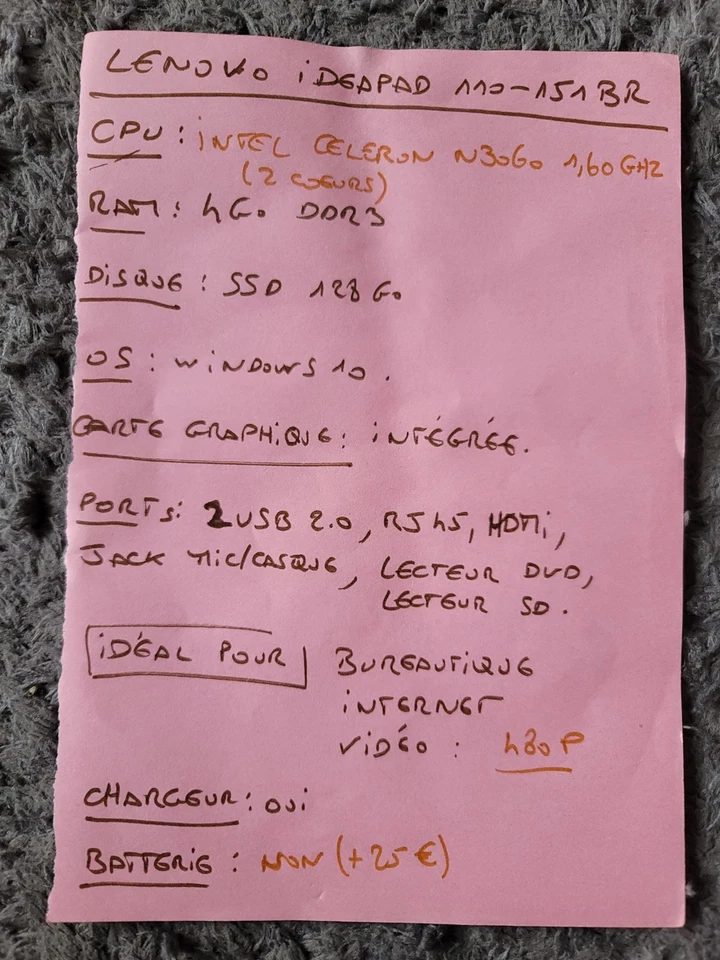 LENOVO iDEAPAD 110-151BR
CPU : iNTEL CELERON N3060 1,60 GHZ
(2 COEURS)
RAM : 4Go DDR3
DiSQUE : SSD 128 Go
OS : WiNDOWS 10 .
CARTE GRAPHiQUE : iNTÉGRÉE.
PORTS : 2 USB 2.0, RJ45, HDMi,
JACK MiC/CASQUE, LECTEUR DVD,
LECTEUR SD .
iDÉAL POUR BUREAUTiQUE
iNTERNET
ViDÉO : 480P
CHARGEUR : OUi
BATTERiE : NON (+25 €)